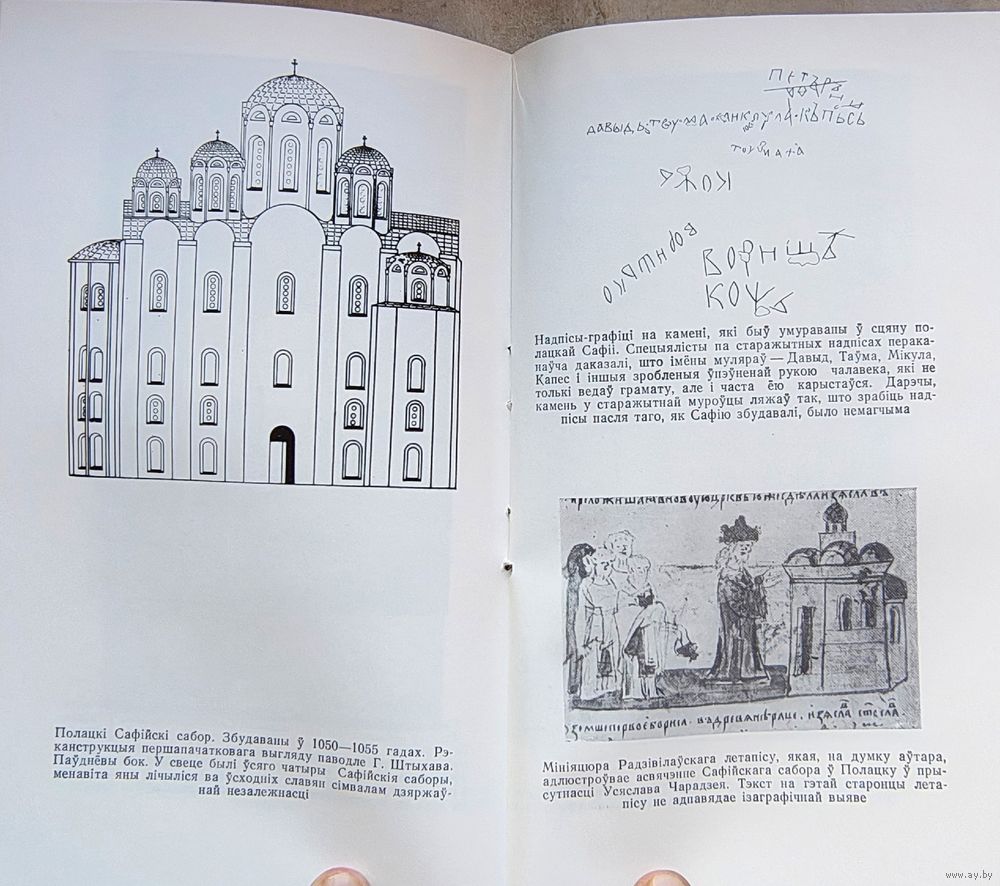 Полацкі Сафійскі сабор. Збудаваны ў 1050—1055 гадах. Рэ-
канструкцыя першапачатковага выгляду паводле Г. Штыхава.
Паўднёвы бок. У свеце былі ўсяго чатыры Сафійскія саборы,
менавіта яны лічыліся ва ўсходніх славян сімвалам дзяржаў-
най незалежнасці
Надпісы-графіці на камені, які быў умураваны ў сцяну по-
лацкай Сафіі. Спецыялісты па старажытных надпісах перака-
наўча даказалі, што імёны муляраў — Давыд, Таўма, Мікула,
Капес і іншыя зробленыя ўпэўненай рукою чалавека, які не
толькі ведаў грамату, але і часта ёю карыстаўся. Дарэчы,
камень у старажытнай муроўцы ляжаў так, што зрабіць над-
пісы пасля таго, як Сафію збудавалі, было немагчыма
Мініяцюра Радзівілаўскага летапісу, якая, на думку аўтара,
адлюстроўвае асвячэнне Сафійскага сабора ў Полацку ў пры-
сутнасці Усяслава Чарадзея. Тэкст на гэтай старонцы лета-
пісу не адпавядае ізаграфічнай выяве
www.ay.by